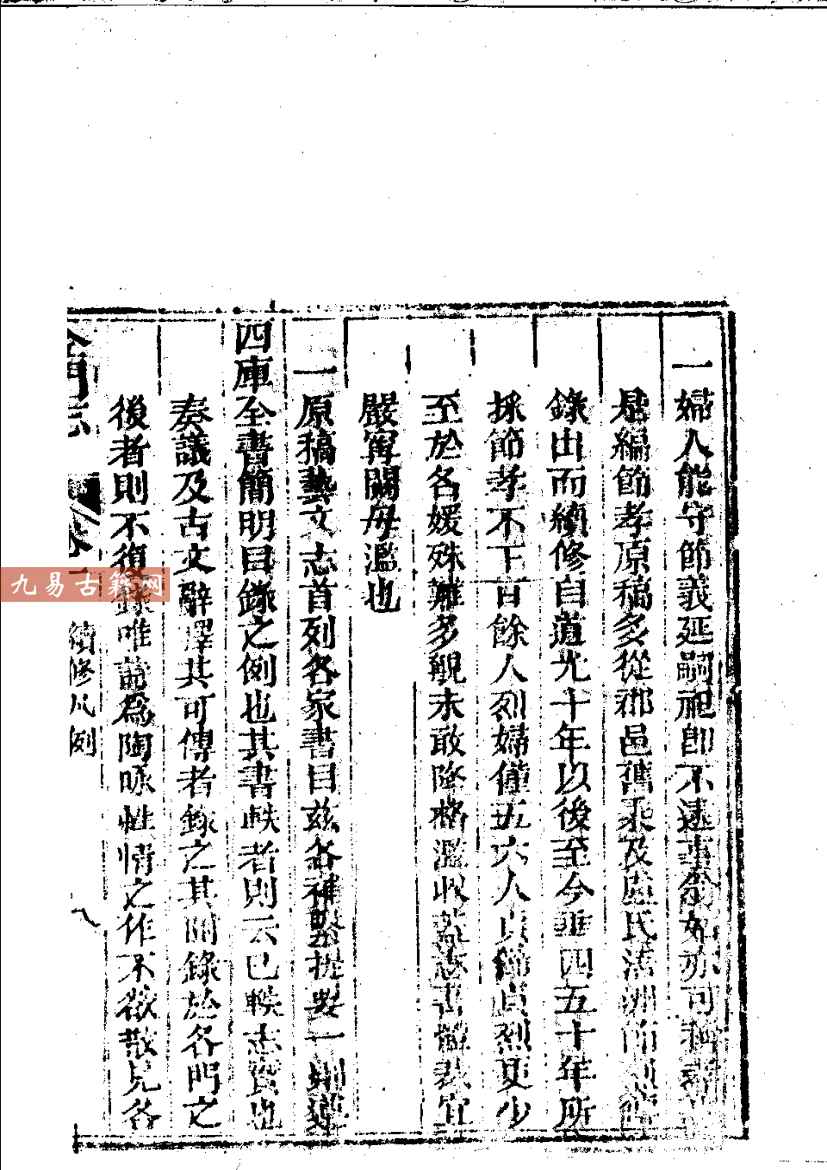 一婦人能守節義延嗣祀卽不逮事翁姑亦可稱孝
是編節孝原稿多從郡邑舊乘及盧氏浯洲節烈傳
錄出而續修自道光十年以後至今垂四五十年所
採節孝不下百餘人烈婦僅五六人貞節貞烈更少
至於名媛殊難多覯未敢降格濫收蓋志書體裁宜
嚴寧闕毋濫也
一原稿藝文志首列各家書目茲各補繫提要一則遵
四庫全書簡明目錄之例也其書軼者則云已軼志實也
奏議及古文辭擇其可傳者錄之其附錄於各門之
後者則不復錄唯詩為陶咏性情之作不欲散見各
金門志 卷一 續修凡例 八
九易古籍网